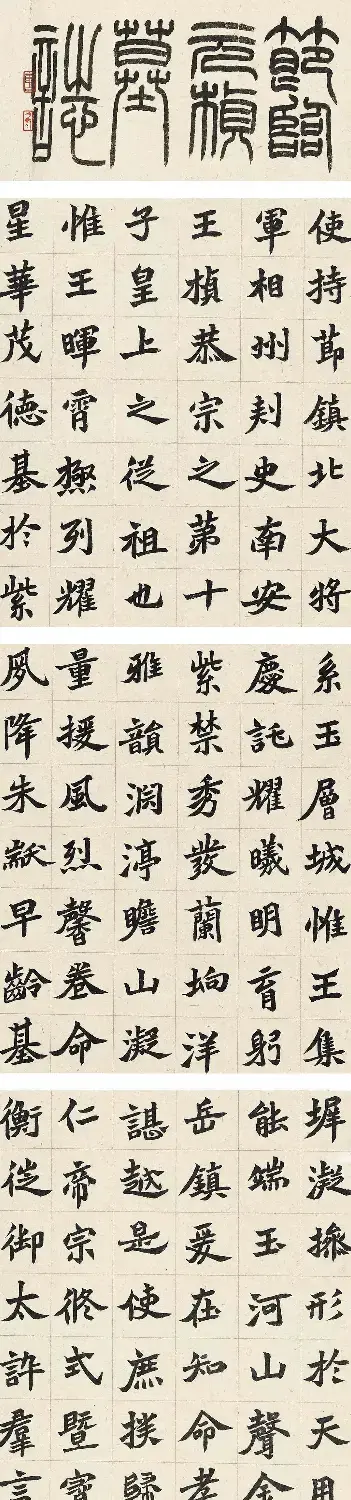 節臨
元楨
墓
誌
使持節鎮北大將
軍相州刾史南安
王楨恭宗之苐十
子皇上之從祖也
惟王暉霄極列耀
星華茂德基於紫
系玉層城惟王集
慶託耀曦明育躬
紫禁秀發蘭坰洋
雅韻淵渟瞻山凝
量援風烈馨卷命
夙降朱黻早齡基
墀凝操形於天用
能端玉河山聲金
岳鎮爰在知命孝
諶越是使庶族歸
仁帝宗攸式暨寶
衡徙御太訊羣言